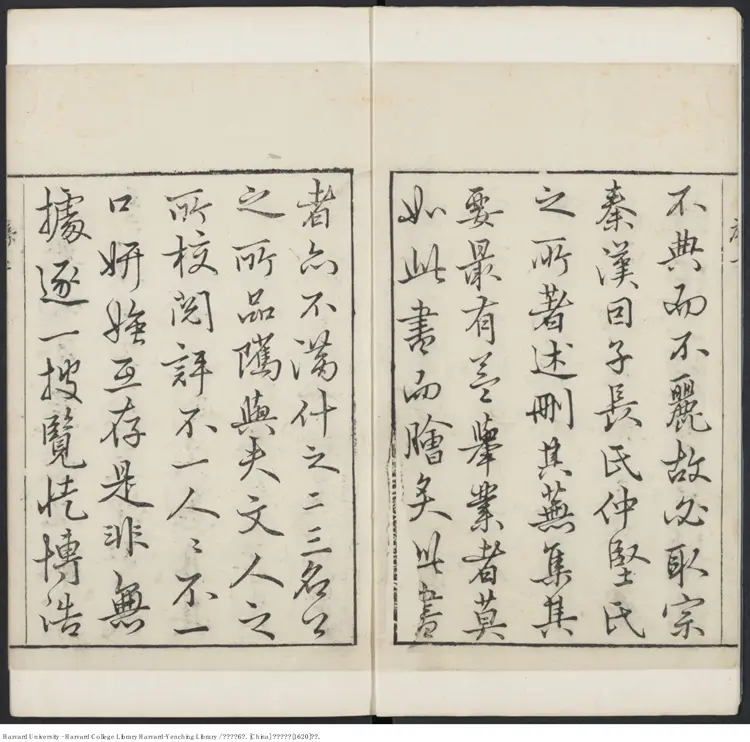 不典而不麗故必取宗
秦漢因子長氏仲堅氏
之所著述刪其蕪集其
要最有益舉業者莫
如此書而膾炙此書
者亦不滿什之二三名公
之所品隲與夫文人之
所校閱評不一人人不一
口妍媸互存是非無
據逐一搜覽恍博浩
Harvard University - Harvard College Library Harvard-Yenching Library / ????6?. [China] ?????[1620]??.